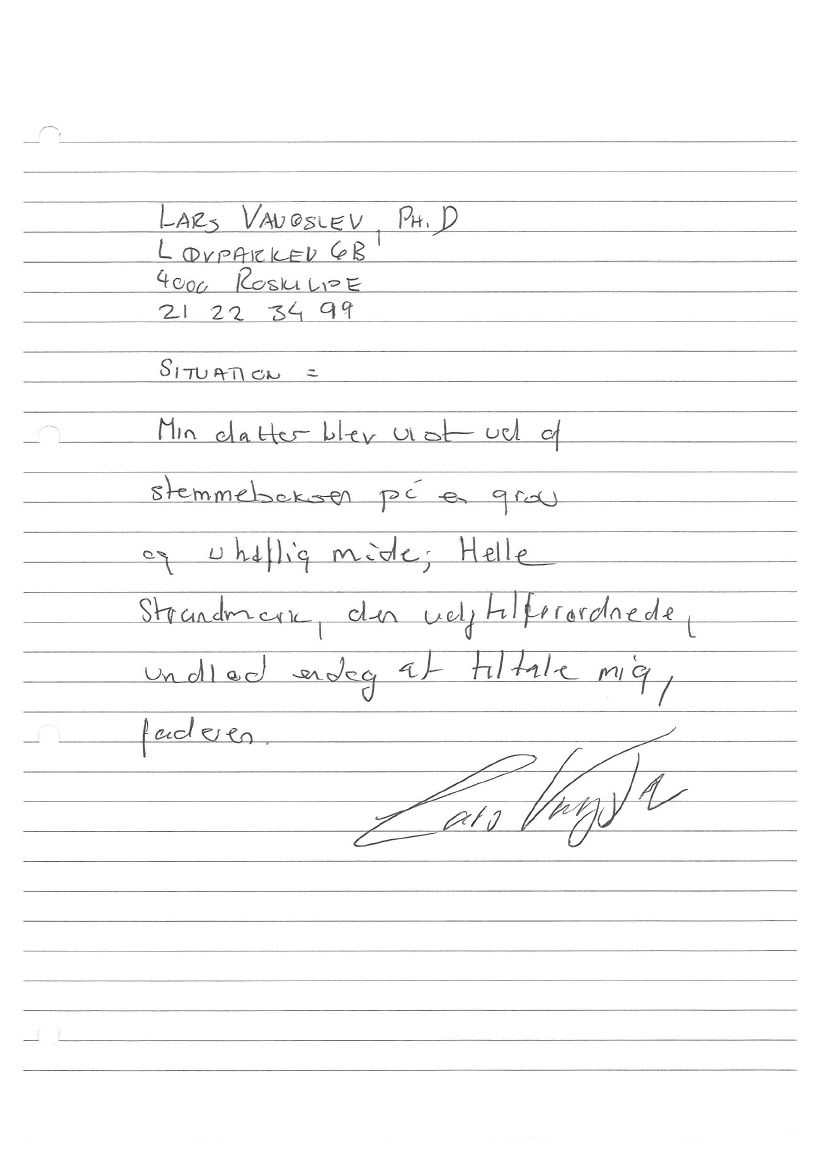 LARS VANGSLEV, PH.D
LØVPARKEN 6B
4000 ROSKILDE
21 22 34 99
SITUATION =
Min datter blev vist ud af
stemmeboksen på en grov
og uhøflig måde; Helle
Strandmark, den valgtilforordnede,
undlod endog at tiltale mig,
faderen.
Lars